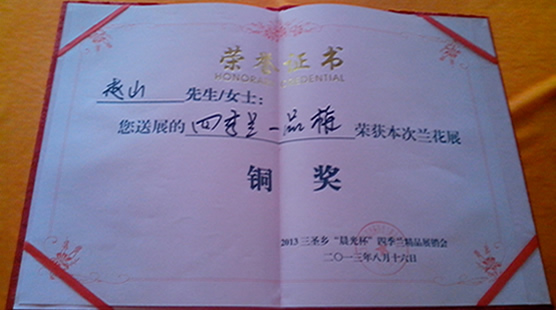 荣誉证书
HONORARY CREDENTIAL
越山 先生/女士：
您送展的四季兰一品雄荣获本次兰花展
铜奖
2013三圣乡“晨光杯”四季兰精品展销会
二〇一三年八月十六日